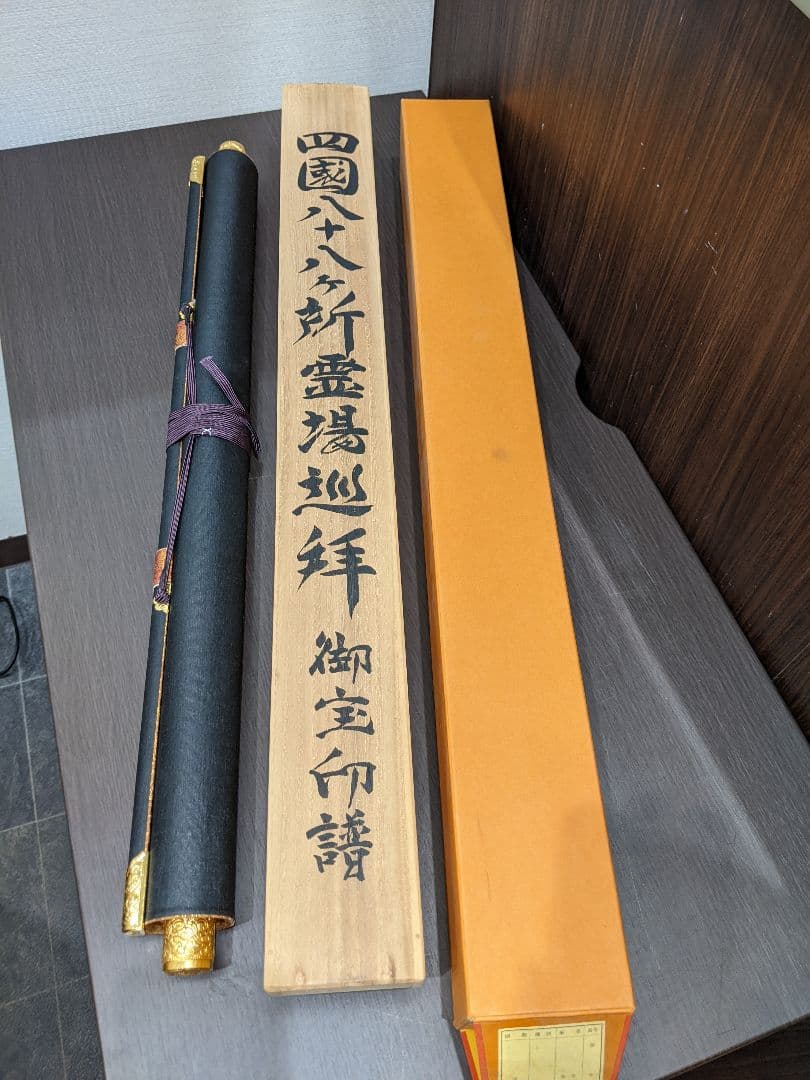 四國八十八ヶ所霊場巡拜御宝印譜